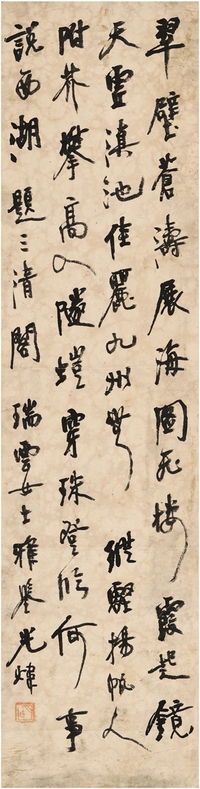 翠壁蒼濤展海圖飛樓霞起鏡
天虛滇池佳麗九州無 縱壑揚帆人
附芥攀高入隧螘穿珠登臨何事
說西湖 題三清閣 瑞雲女士雅鑒 光煒